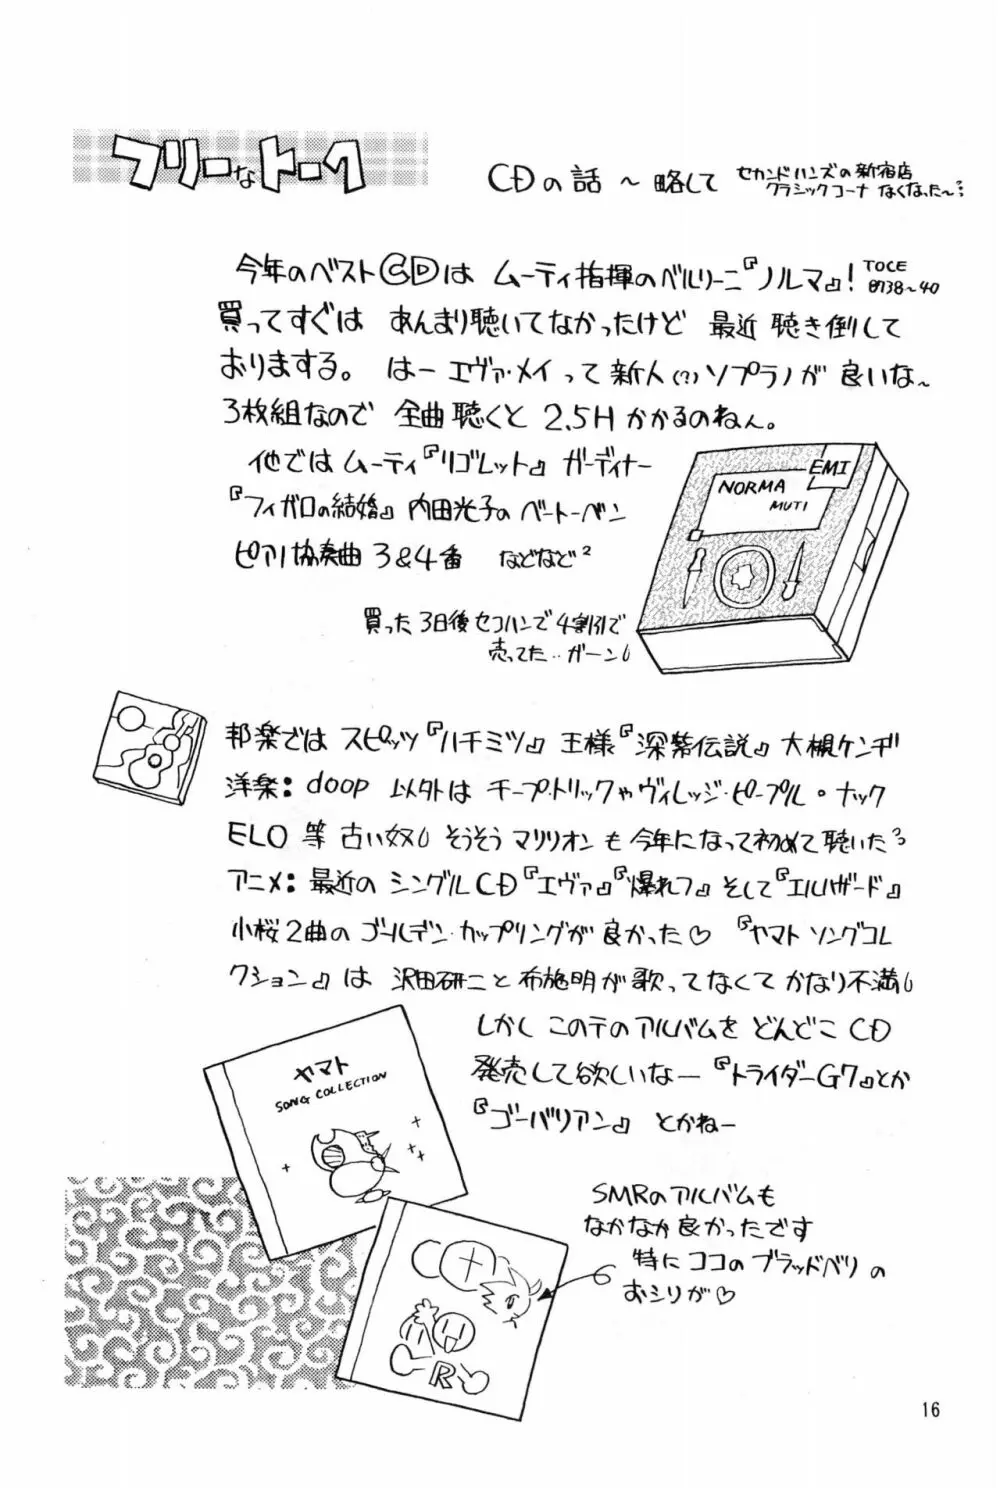 フリーなトーク
CDの話 〜 略して
セカンドハンズの新宿店
クラシックコーナ なくなった〜
今年のベストCDは ムーティ指揮のベルリーニ『ノルマ』! TOCE
8738〜40
買ってすぐは あんまり聴いてなかったけど 最近 聴き倒して
おりまする。 はー エヴァ・メイって 新人(?)ソプラノが 良いな〜
3枚組なので 全曲 聴くと 2.5H かかるのねん。
他では ムーティ『リゴレット』 ガーディナー
『フィガロの結婚』 内田光子の ベートーベン
ピアノ協奏曲 3&4番 などなど2
EMI
NORMA
MUTI
買った 3日後 セコハンで 4割引で
売ってた‥ガーン
邦楽では スピッツ『ハチミツ』 王様『深紫伝説』 大槻ケンヂ
洋楽: doop 以外は チープ・トリックや ヴィレッジ・ピープル・ナック
ELO 等 古い奴 そうそう マリリオン も 今年になって 初めて 聴いた
アニメ: 最近の シングルCD『エヴァ』『爆れフ』 そして『エルハザード』
小桜2曲の ゴールデン・カップリングが 良かった♡ 『ヤマト ソングコレ
クション』は 沢田研二と 布施明が 歌って なくて かなり 不満
しかし このテの アルバムを どんどこ CD
発売して 欲しいなー 『トライダーG7』とか
『ゴーバリアン』 とかねー
ヤマト
SONG COLLECTION
SMRの アルバムも
なかなか 良かったです
特に ココの ブラッドベリ の
おシリが♡
R
16